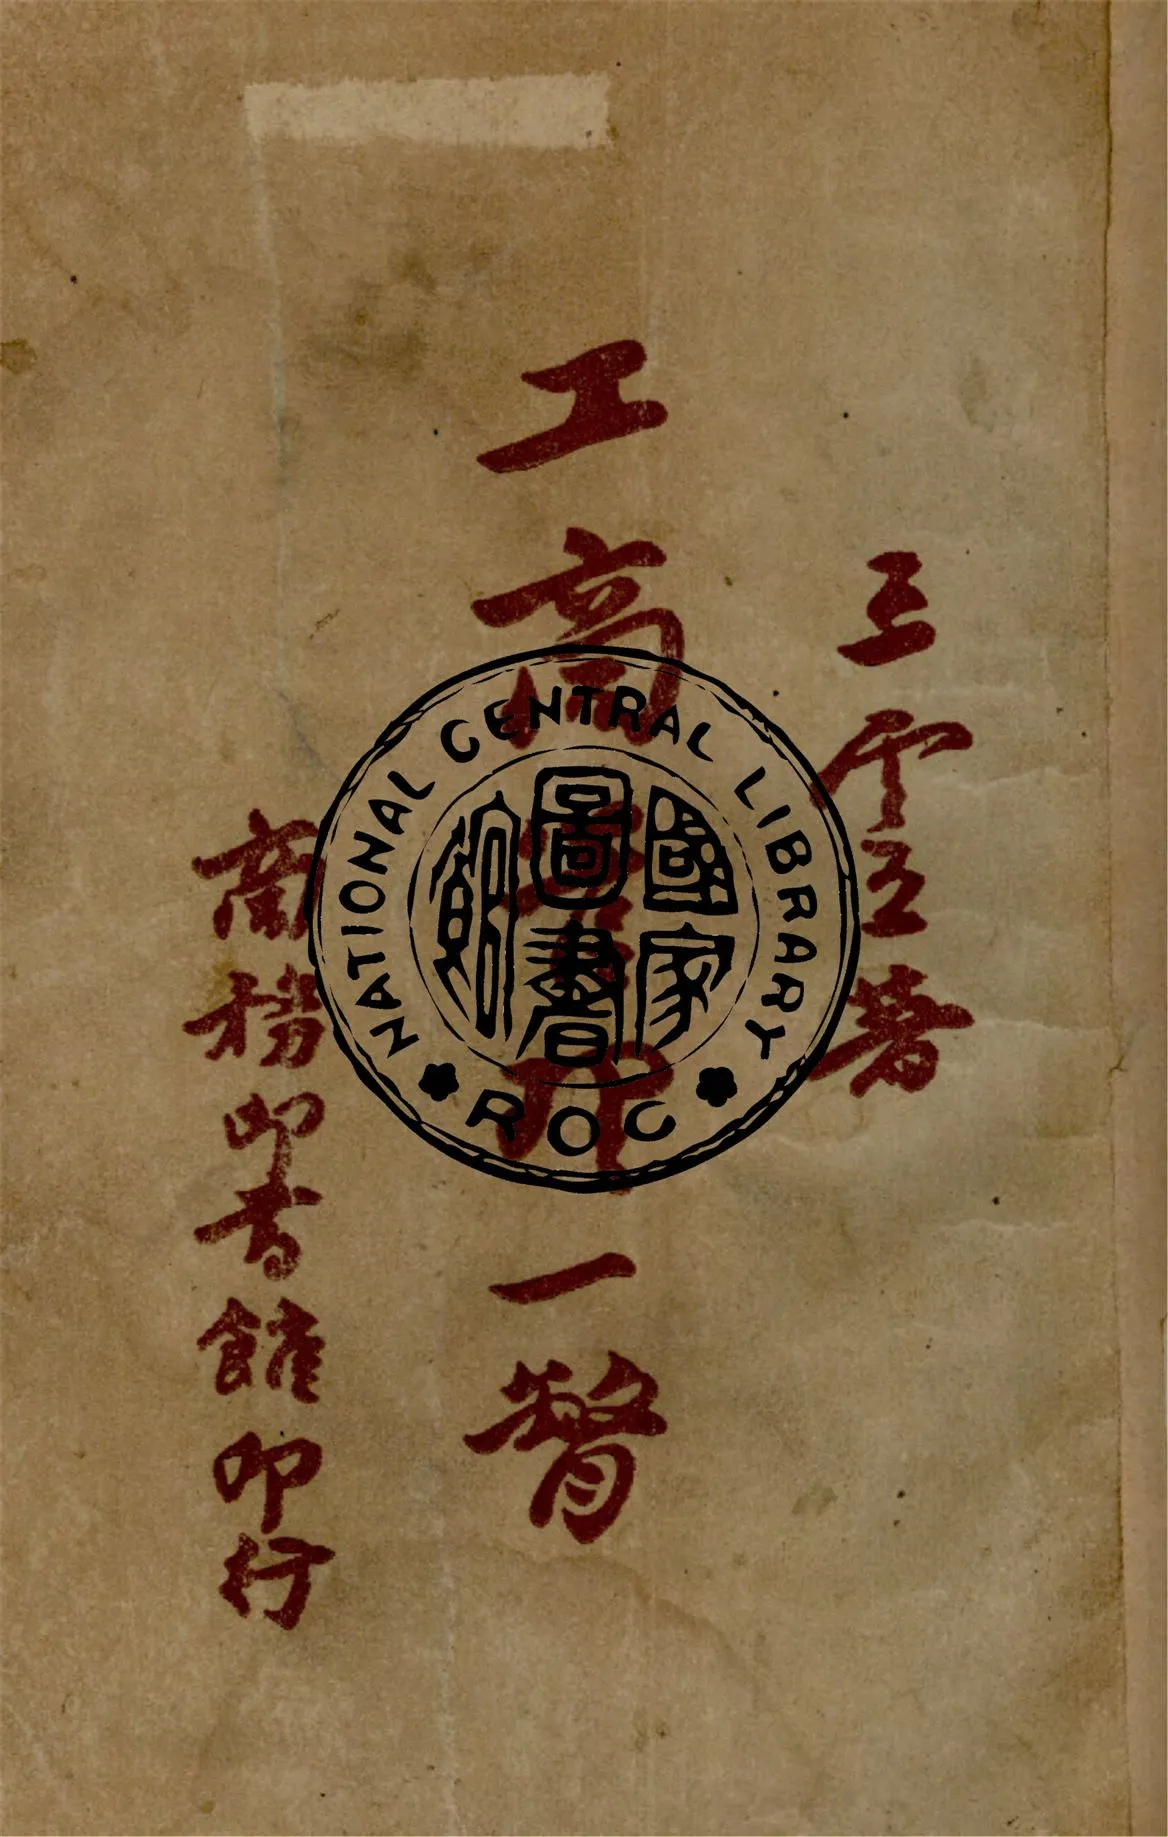 王雲五著
工商管理一瞥
商務印書館印行
NATIONAL CENTRAL LIBRARY
國家圖書館
ROC